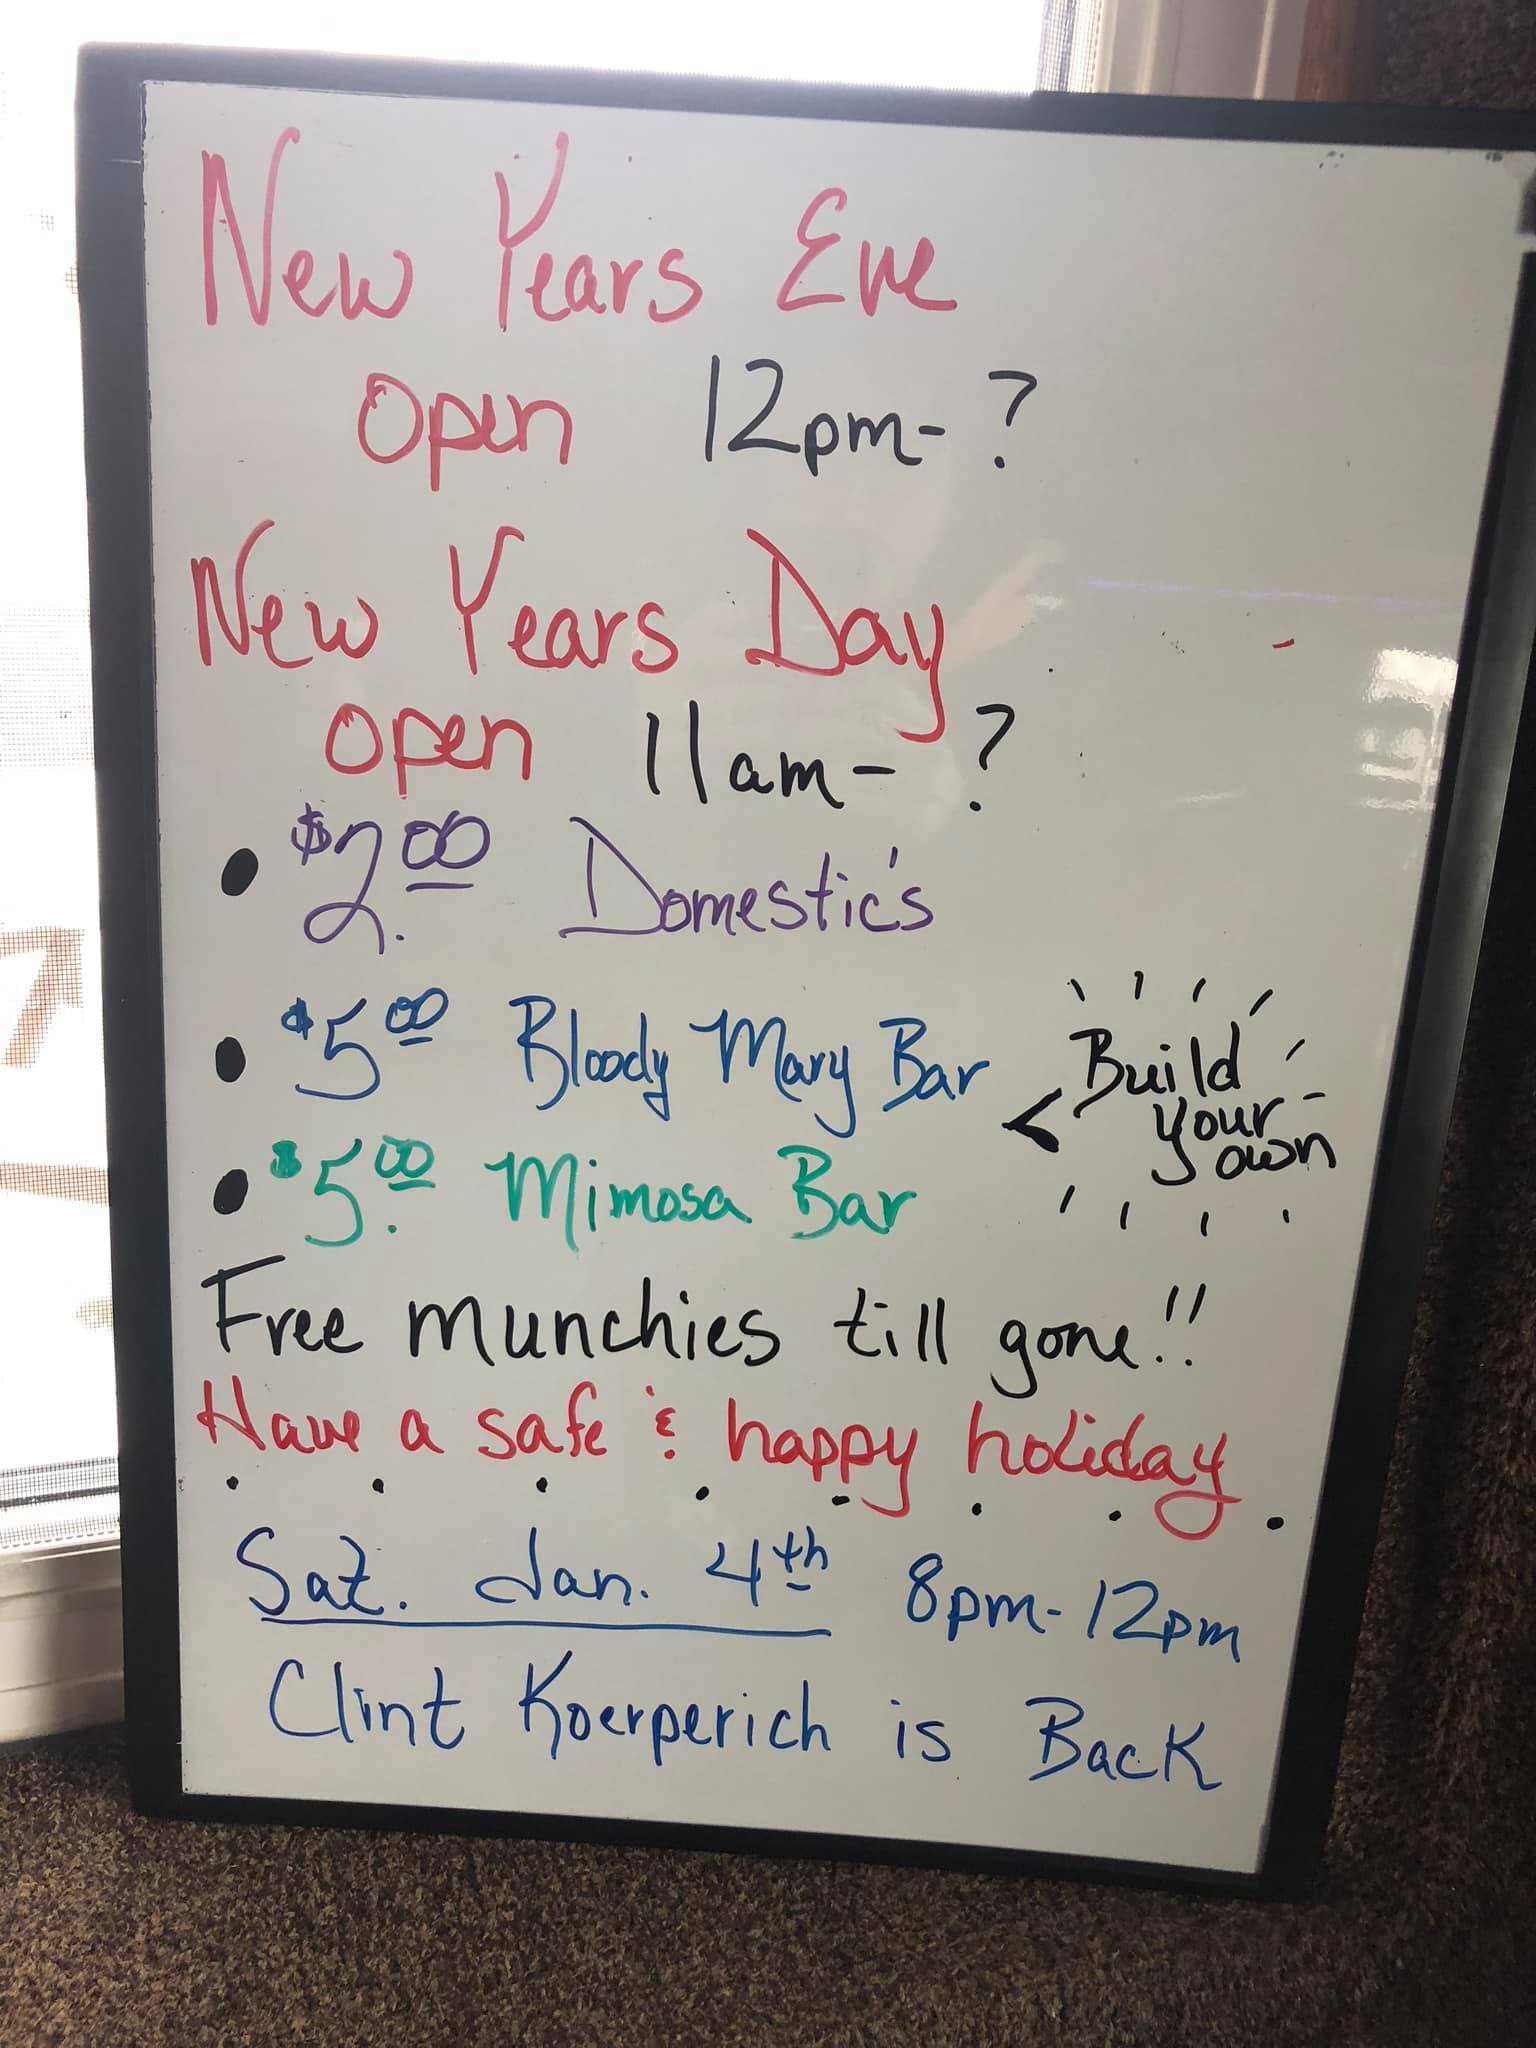 New Years Eve
Open 12pm- ?
New Years Day
Open 11am- ?
• $2.00 Domestic's
• $5.00 Bloody Mary Bar
< Build
your
own
• $5.00 Mimosa Bar
Free munchies till gone!!
Have a safe & happy holiday
Sat. Jan. 4th 8pm-12pm
Clint Koerperich is Back